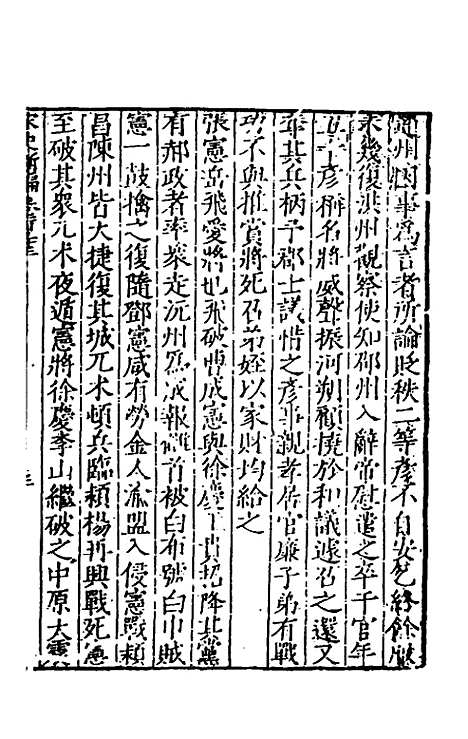 通州因事爲言者所論貶秩二等彥不自安乞終餘服
未幾復洪州觀察使知邵州入辭帝慰遣之卒于官年
五十彥稱名將威聲振河朔顧撓於和議遽召之還又
奪其兵柄予郡士議惜之彥事親孝居官廉子弟有戰
功不與推賞將死召弟姪以家財均給之
張憲岳飛愛將也飛破曹成憲與徐慶王貴招降其黨
有郝政者率衆走沅州爲成報讎首被白布號白巾賊
憲一鼓擒之復隨鄧憲咸有勞金人渝盟入侵憲戰頼
昌陳州皆大捷復其城兀术頓兵臨頼楊再興戰死憲
至破其衆兀术夜遁憲將徐慶李山繼破之中原大震
宋史新編